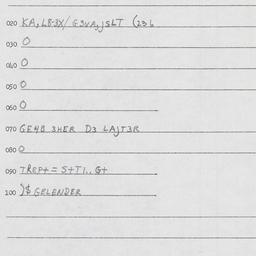 020 KA, L8-3X/ G3VA, jSLT (23L
030 O
040 O
050 O
060 O
070 GE4B 3HER D3 LAJT3R
080 O
090 TREP+ = S+T1.. G+
100 )$ GELENDER